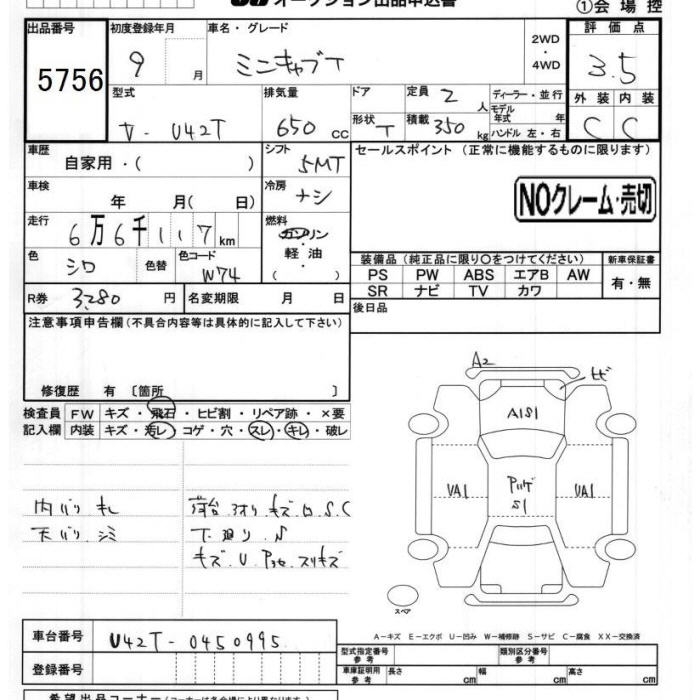 オークション出品申込書
①会場控
出品番号
5756
初度登録年月
9 月
車名・グレード
ミニキャブT
2WD
・
4WD
評価点
3.5
型式
V-U42T
排気量
650 cc
ドア
形状
T
定員 2 人
積載 350 kg
ディーラー・並行
モデル年式 年
ハンドル 左・右
外装 内装
C C
車歴
自家用・( )
シフト
5MT
セールスポイント (正常に機能するものに限ります)
車検
年 月( 日)
冷房
ナシ
NOクレーム・売切
走行
6万6千117km
燃料
ガソリン
・
軽油
・
( )
色
シロ
色替
色コード
W74
装備品(純正品に限り○をつけてください)
新車保証書
PS PW ABS エアB AW
SR ナビ TV カワ
有・無
R券 3280 円
名変期限 月 日
後日品
注意事項申告欄(不具合内容等は具体的に記入して下さい)
修復歴 有 〔箇所 〕
検査員 FW キズ・飛石・ヒビ割・リペア跡・×要
記入欄 内装 キズ・汚レ・コゲ・穴・スレ・キレ・破レ
内バリ キレ
天バリ シミ
荷台 アオリ キズ
下廻り S
キズ U
スリキズ
A2
ヒビ
A1S1
UA1
S1
UA1
スペア
A-キズ E-エクボ U-凹み W-補修跡 S-サビ C-腐食 XX-交換済
車台番号
U42T-0450995
登録番号
型式指定番号 参考
類別区分番号 参考
車庫証明用 参考
長さ cm 幅 cm 高さ cm
希望出品コーナー(コーナーは各会場により異なります)